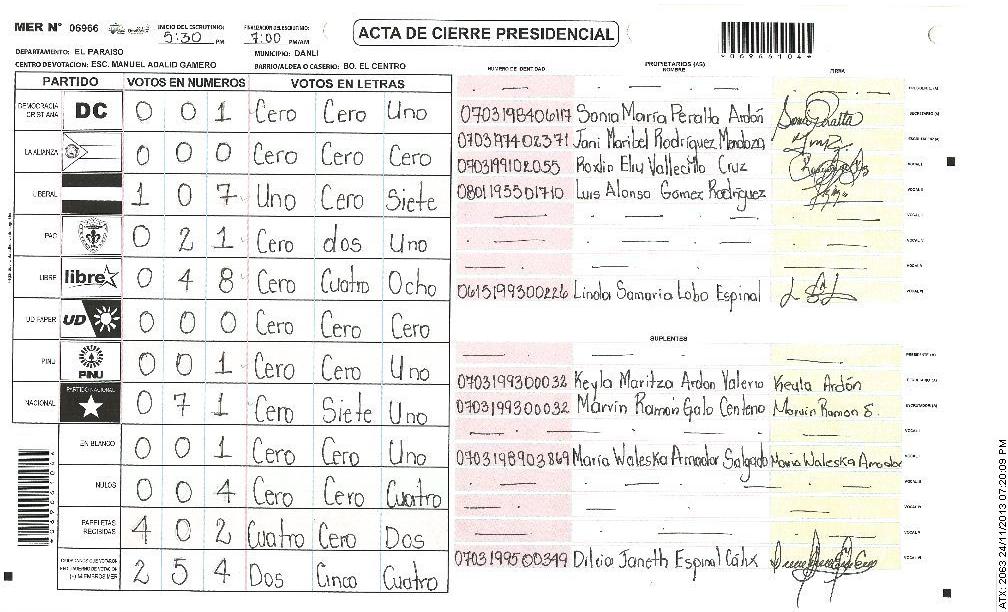 MER N° 06966 INICIO DEL ESCRUTINIO: 5:30 PM FINALIZACIÓN DEL ESCRUTINIO: 7:00 PM/AM
ACTA DE CIERRE PRESIDENCIAL
*06966104*
DEPARTAMENTO: EL PARAISO MUNICIPIO: DANLI
CENTRO DE VOTACION: ESC. MANUEL ADALID GAMERO BARRIO/ALDEA O CASERIO: BO. EL CENTRO
PARTIDO VOTOS EN NUMEROS VOTOS EN LETRAS
DEMOCRACIA CRISTIANA DC 0 0 1 Cero Cero Uno
LA ALIANZA 0 0 0 Cero Cero Cero
LIBERAL 1 0 7 Uno Cero Siete
PAC 0 2 1 Cero dos Uno
LIBRE libre 0 4 8 Cero Cuatro Ocho
UD FAPER UD 0 0 0 Cero Cero Cero
PINU PINU 0 0 1 Cero Cero Uno
NACIONAL PARTIDO NACIONAL 0 7 1 Cero Siete Uno
EN BLANCO 0 0 1 Cero Cero Uno
NULOS 0 0 4 Cero Cero Cuatro
PAPELETAS RECIBIDAS 4 0 2 Cuatro Cero Dos
2 5 4 Dos Cinco Cuatro
NUMERO DE IDENTIDAD PROPIETARIOS (AS) NOMBRE FIRMA
0703198406117 Sonia María Peralta Ardón
0703197402371 Jani Maribel Rodríguez Mendoza
Vallecillo Cruz
0801195501710 Luis Alonso Gomez Rodríguez
0615199300226 Linda Samaria Lobo Espinal
SUPLENTES
0703199300032 Keyla Maritza Ardon Valerio Keyla Ardón
0703199300032 Marvin Ramon Galo Centeno Marvin Ramon G.
0703198903869 María Waleska Amador Salgado Maria Waleska Amador
0703199500349 Dilcia Janeth Espinal Cálix
ATX: 2063 24/11/2013 07:20:09 PM